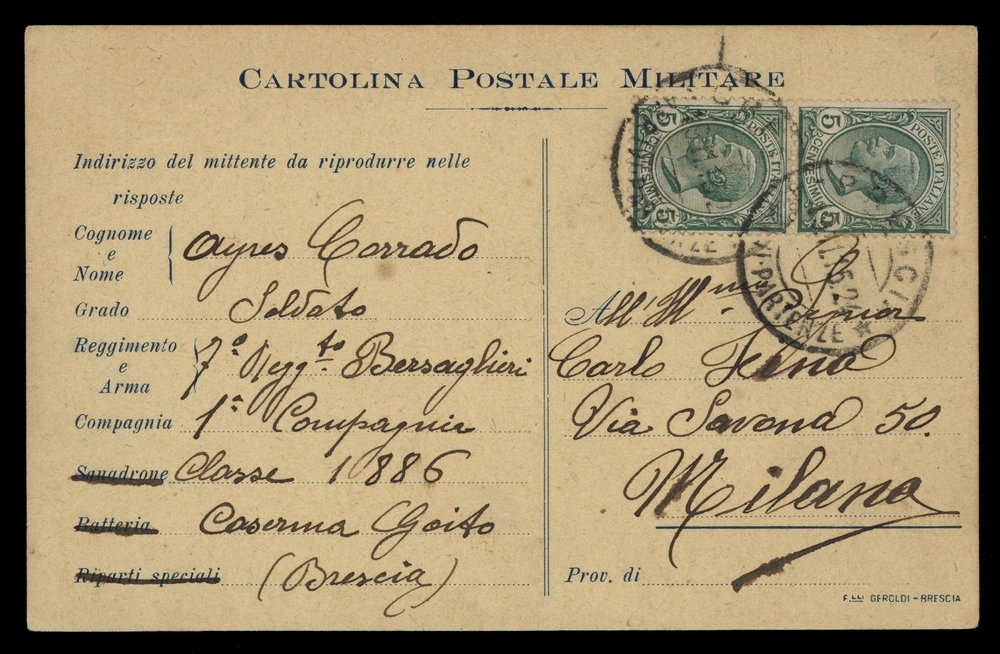 CARTOLINA POSTALE MILITARE
Indirizzo del mittente da riprodurre nelle
risposte
Cognome
e
Nome
Ayres Corrado
Grado
Soldato
Reggimento
e
Arma
7° Regg.to Bersaglieri
Compagnia
1a Compagnia
Squadrone
Classe 1886
Batteria
Caserma Goito
Riparti speciali
(Brescia)
5
CENTESIMI
5
POSTE ITALIANE
5
CENTESIMI
5
POSTE ITALIANE
PARTENZE
All'Ill
Carlo
Via Savona 50.
Milano
Prov. di
F.LLI GEROLDI - BRESCIA